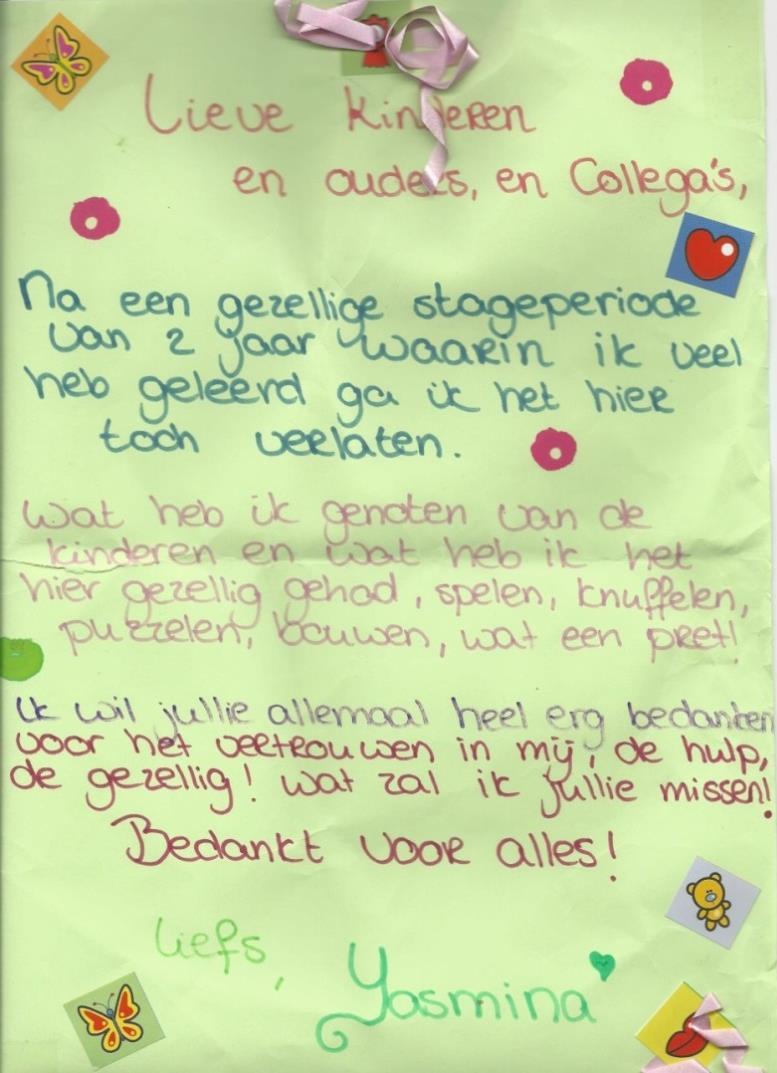 Lieve kinderen
en ouders, en Collega's,
Na een gezellige stageperiode
van 2 jaar waarin ik veel
heb geleerd ga ik het hier
toch verlaten.
Wat heb ik genoten van de
kinderen en wat heb ik het
hier gezellig gehad, spelen, knuffelen,
puzzelen, bouwen, wat een pret!
Ik wil jullie allemaal heel erg bedanken
voor het vertrouwen in mij, de hulp,
de gezellig! wat zal ik jullie missen!
Bedankt voor alles!
Liefs,
Yasmina